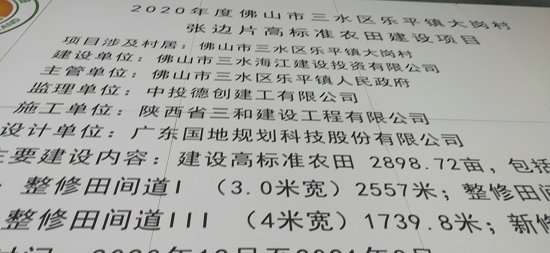 2020年度佛山市三水区乐平镇大岗村
张边片高标准农田建设项目
项目涉及村居：佛山市三水区乐平镇大岗村
建设单位：佛山市三水海江建设投资有限公司
主管单位：佛山市三水区乐平镇人民政府
监理单位：中投德创建工有限公司
施工单位：陕西省三和建设工程有限公司
设计单位：广东国地规划科技股份有限公司
主要建设内容：建设高标准农田 2898.72亩，包括
整修田间道I （3.0米宽）2557米；整修田间
整修田间道III （4米宽）1739.8米；新修